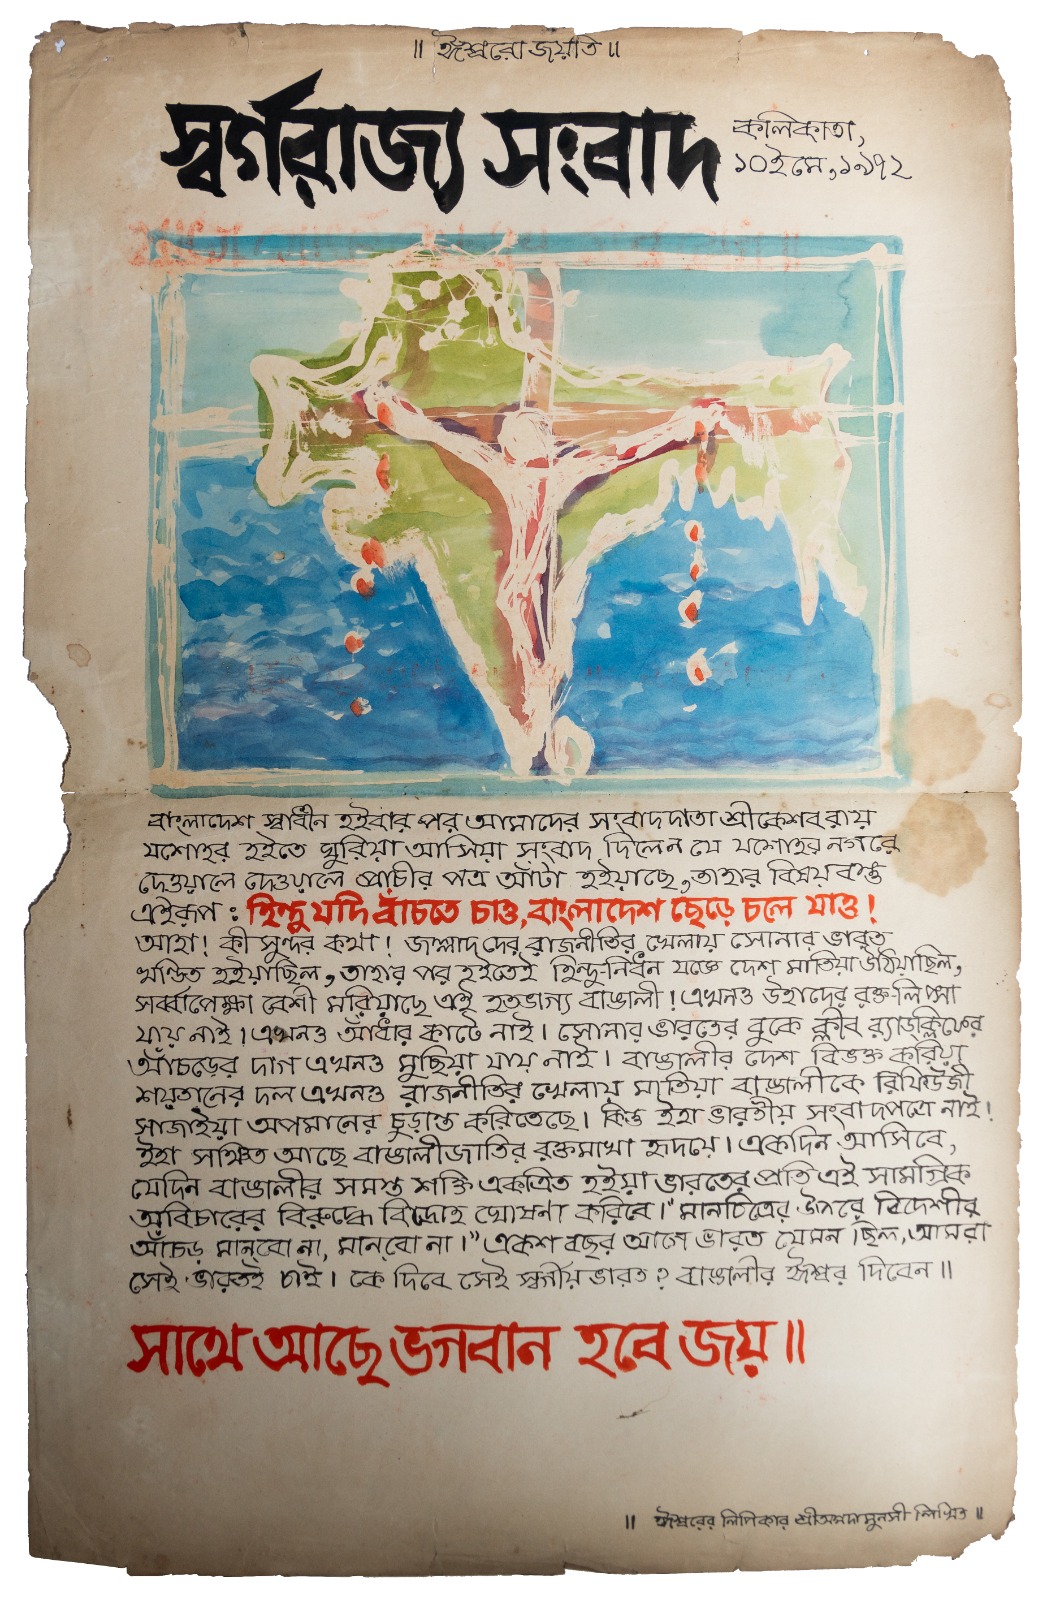 ॥ ঈশ্বরো জয়তি ॥
স্বর্গরাজ্য সংবাদ
কলিকাতা,
১০ই মে, ১৯৭২
বাংলাদেশ স্বাধীন হইবার পর আমাদের সংবাদদাতা শ্রীকেশব রায়
যশোহর হইতে ঘুরিয়া আসিয়া সংবাদ দিলেন যে যশোহর নগরে
দেওয়ালে দেওয়ালে প্রাচীর পত্র আঁটা হইয়াছে, তাহার বিষয় বস্তু
এইরূপ : হিন্দু যদি বাঁচতে চাও, বাংলাদেশ ছেড়ে চলে যাও !
আহা ! কী সুন্দর কথা ! জল্লাদদের রাজনীতির খেলায় সোনার ভারত
খণ্ডিত হইয়াছিল, তাহার পর হইতেই হিন্দু-নিধন যজ্ঞে দেশ মাতিয়া উঠিয়াছিল,
সর্ব্বাপেক্ষা বেশী মরিয়াছে এই হতভাগ্য বাঙালী ! এখনও উহাদের রক্ত-লিপ্সা
যায় নাই । এখনও আঁধার কাটে নাই । সোনার ভারতের বুকে ক্লীব র‍্যাডক্লিফের
আঁচড়ের দাগ এখনও মুছিয়া যায় নাই । বাঙালীর দেশ বিভক্ত করিয়া
শয়তানের দল এখনও রাজনীতির খেলায় মাতিয়া বাঙালীকে রিফিউজী
সাজাইয়া অপমানের চূড়ান্ত করিতেছে । কিন্তু ইহা ভারতীয় সংবাদপত্রে নাই !
ইহা সঞ্চিত আছে বাঙালীজাতির রক্তমাখা হৃদয়ে । একদিন আসিবে,
যেদিন বাঙালীর সমস্ত শক্তি একত্রিত হইয়া ভারতের প্রতি এই সামগ্রিক
অবিচারের বিরুদ্ধে বিদ্রোহ ঘোষণা করিবে । "মানচিত্রের উপরে বিদেশীর
আঁচড় মানবো না, মানবো না ।" একশ বছর আগে ভারত যেমন ছিল, আমরা
সেই ভারতই চাই । কে দিবে সেই স্বর্গীয় ভারত ? বাঙালীর ঈশ্বর দিবেন ॥
সাথে আছে ভগবান হবে জয় ॥
॥ ঈশ্বরের লিপিকার শ্রীঅন্নদা মুনসী লিখিত ॥